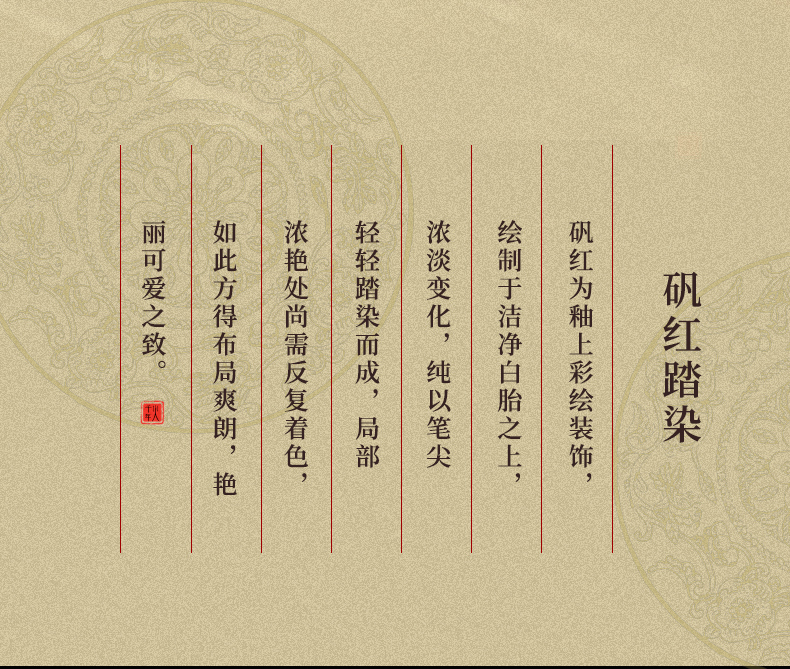 矾红踏染
矾红为釉上彩绘装饰，
绘制于洁净白胎之上，
浓淡变化，纯以笔尖
轻轻踏染而成，局部
浓艳处尚需反复着色，
如此方得布局爽朗，艳
丽可爱之致。